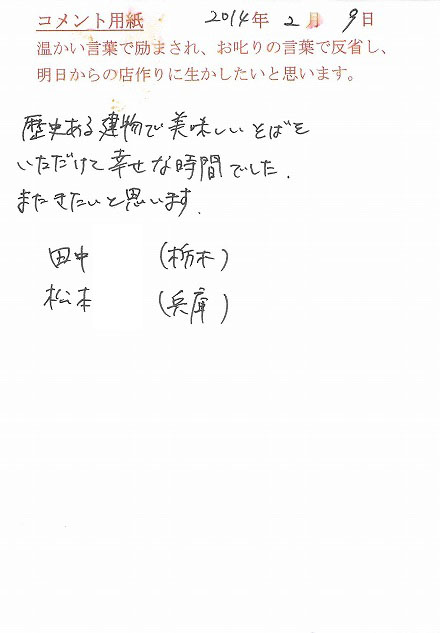 コメント用紙 2014年 2月 9日
温かい言葉で励まされ、お叱りの言葉で反省し、
明日からの店作りに生かしたいと思います。
歴史ある建物で美味しいそばを
いただけて幸せな時間でした.
またきたいと思います.
田中 (栃木)
松本 (兵庫)